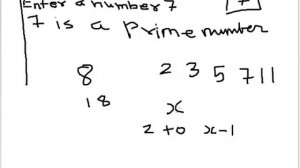 Enter a number 7
7
7 is a Prime number
8 2 3 5 7 11
18 x
2 to x-1